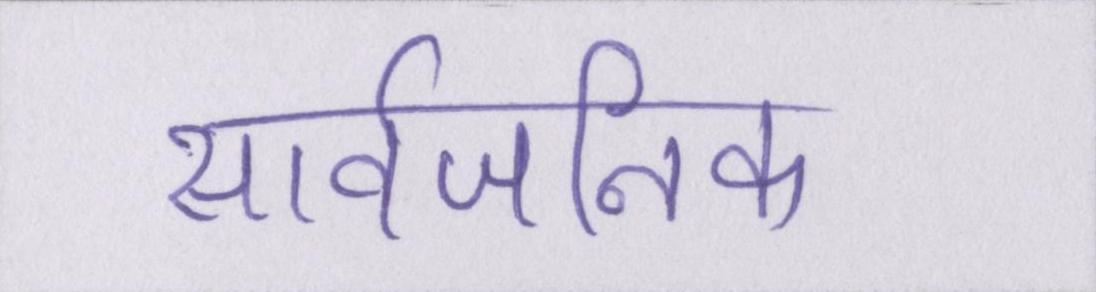 सार्वजनिक